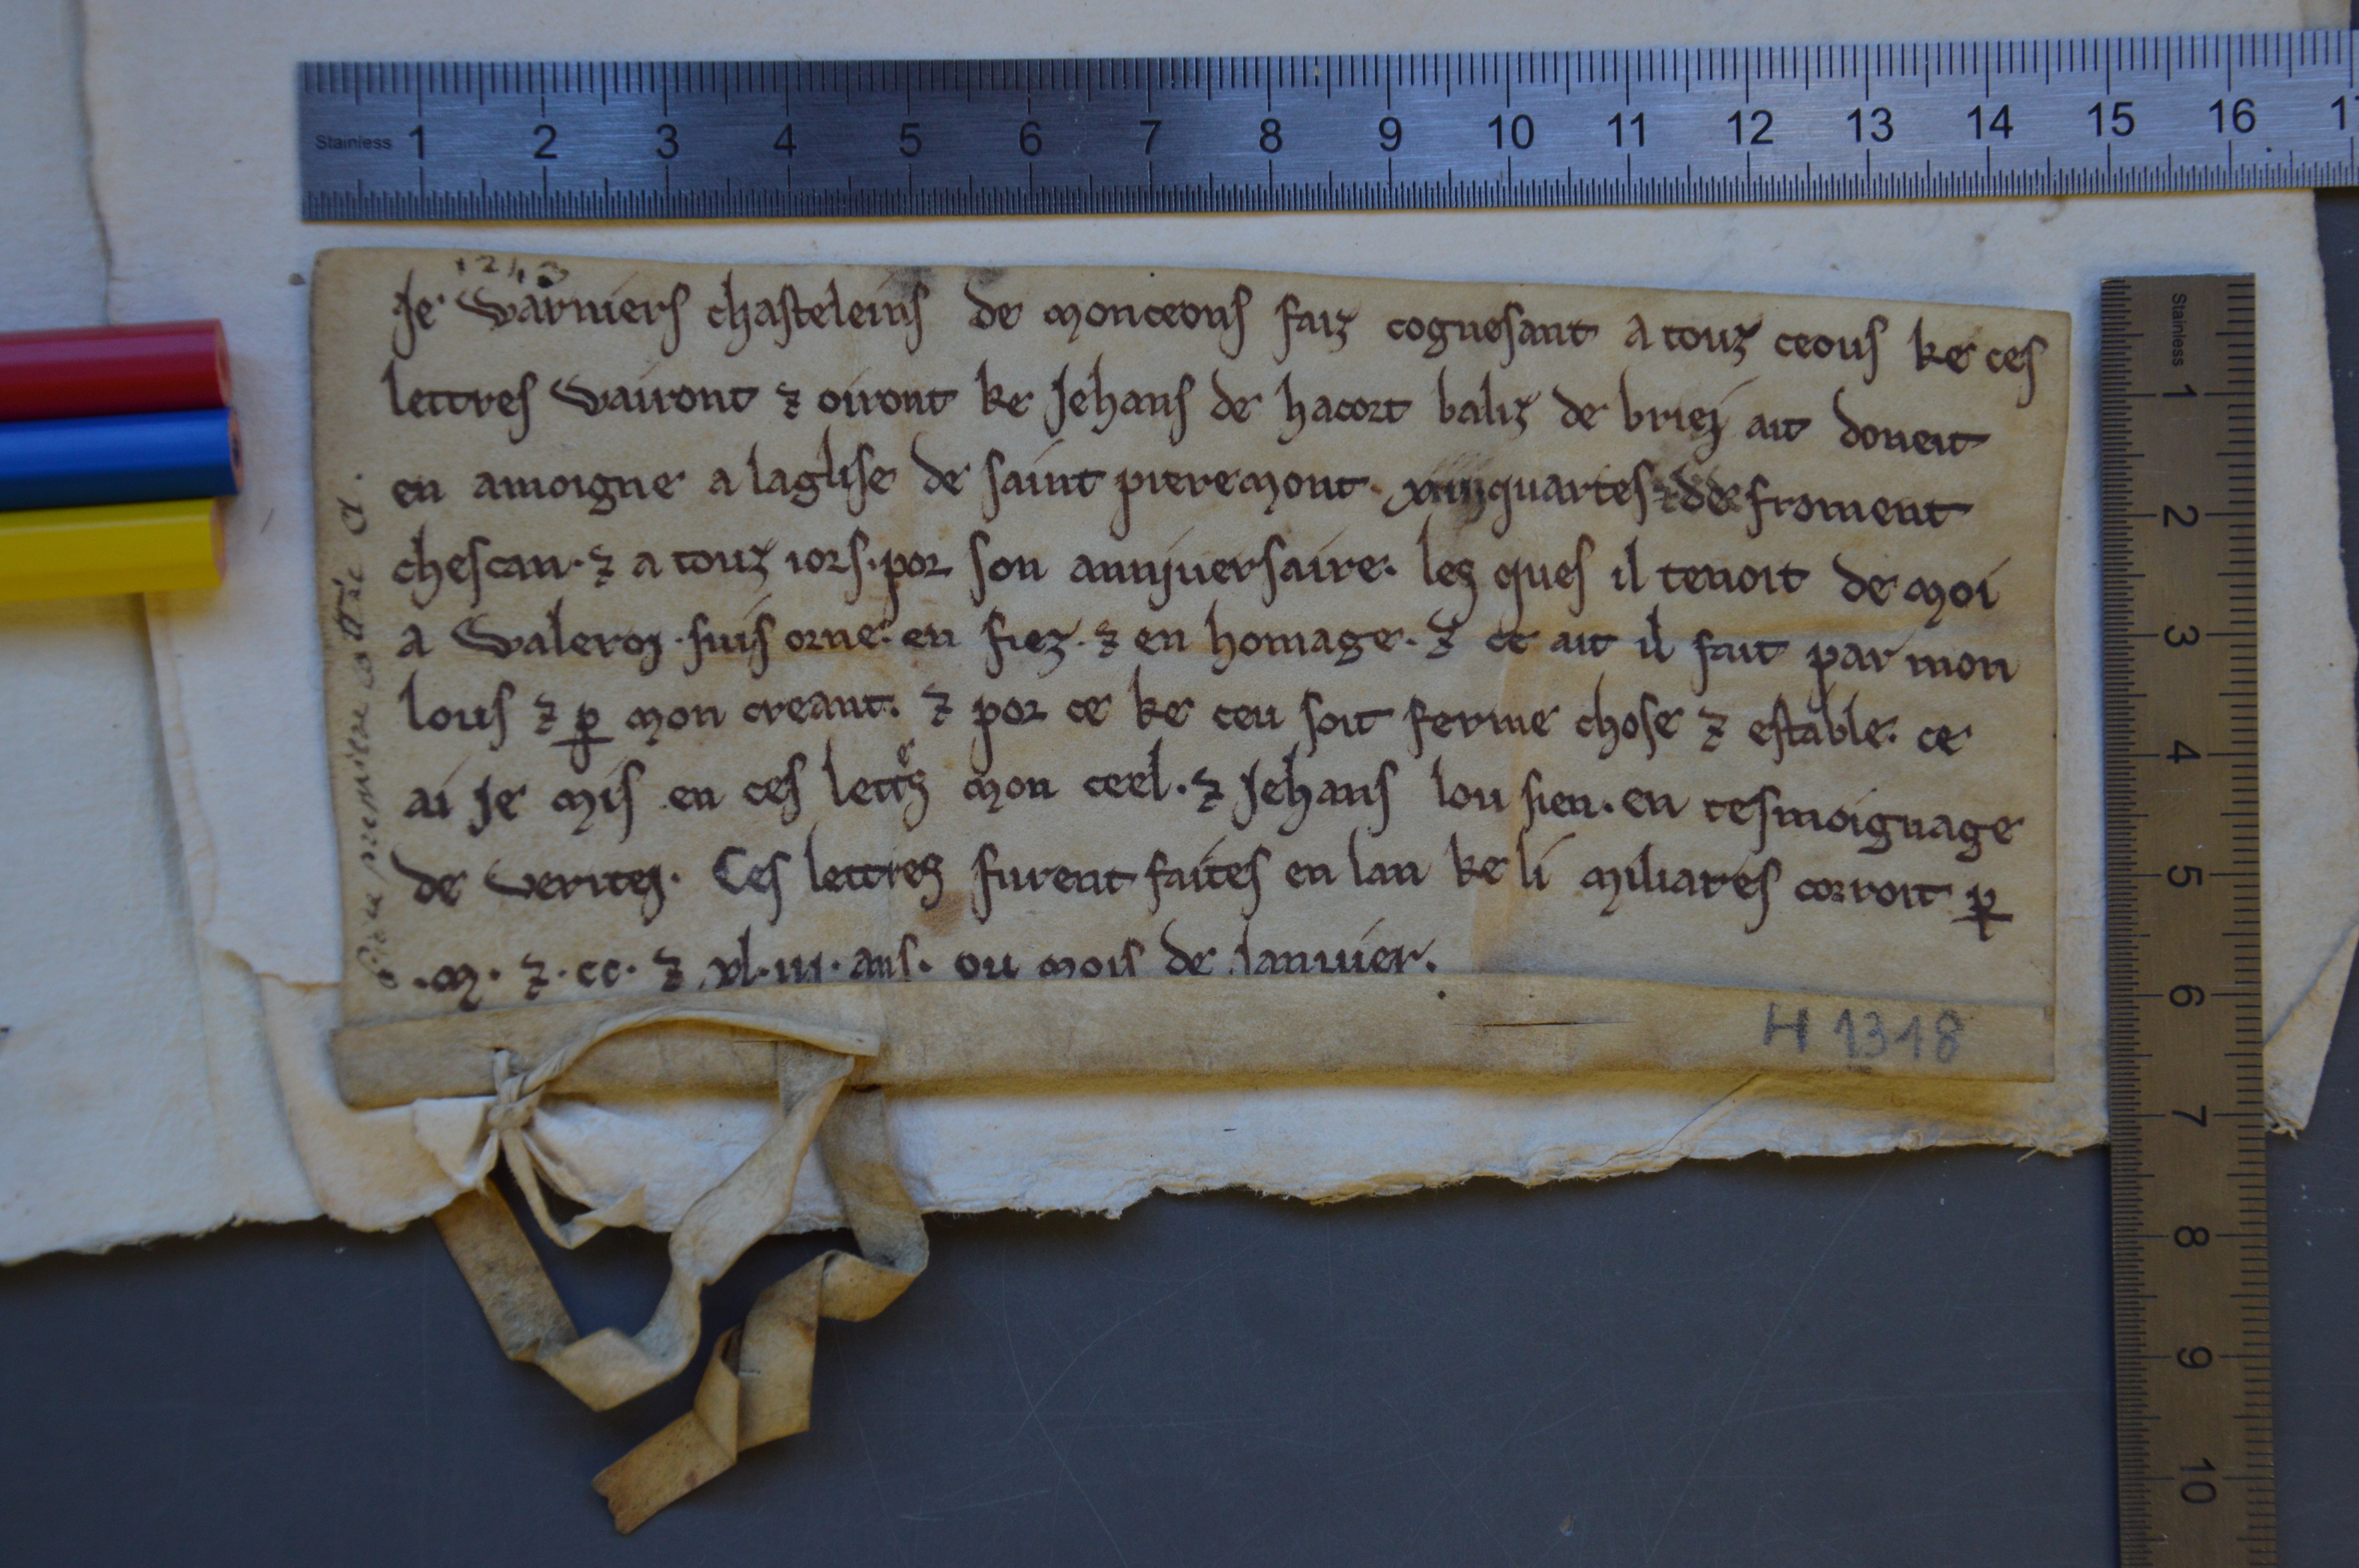 Stainless 1 2 3 4 5 6 7 8 9 10 11 12 13 14 15 16
1243
Je Warniers chasteleins de monceons faiz cognesant a touz ceous ke ces
lettres Wairont ⁊ oiront ke Jehans de hacort baliz de briej ait doneit
en amoigne a laglise de saint pieremont. quartes de froment
chescan. ⁊ a touz iors. por son annjuersaire. lez ques il tenoit de moi
a Waleroj. suis orne. en fiez. ⁊ en homage. ⁊ ce ait il fait par mon
lous ⁊ ꝑ mon creant. ⁊ por ce ke ceu soit ferme chose ⁊ estable. ce
ai Je mis en ces lettᵉz mon ceel. ⁊ Jehans lou sien. en tesmoignage
de Veritej. Ces lettrez furent faites en lan ke li miliares corroit ꝑ
.m. ⁊ .cc. ⁊ xl. iii. ans. ou mois de Januier.
H 1318
Stainless 1 2 3 4 5 6 7 8 9 10